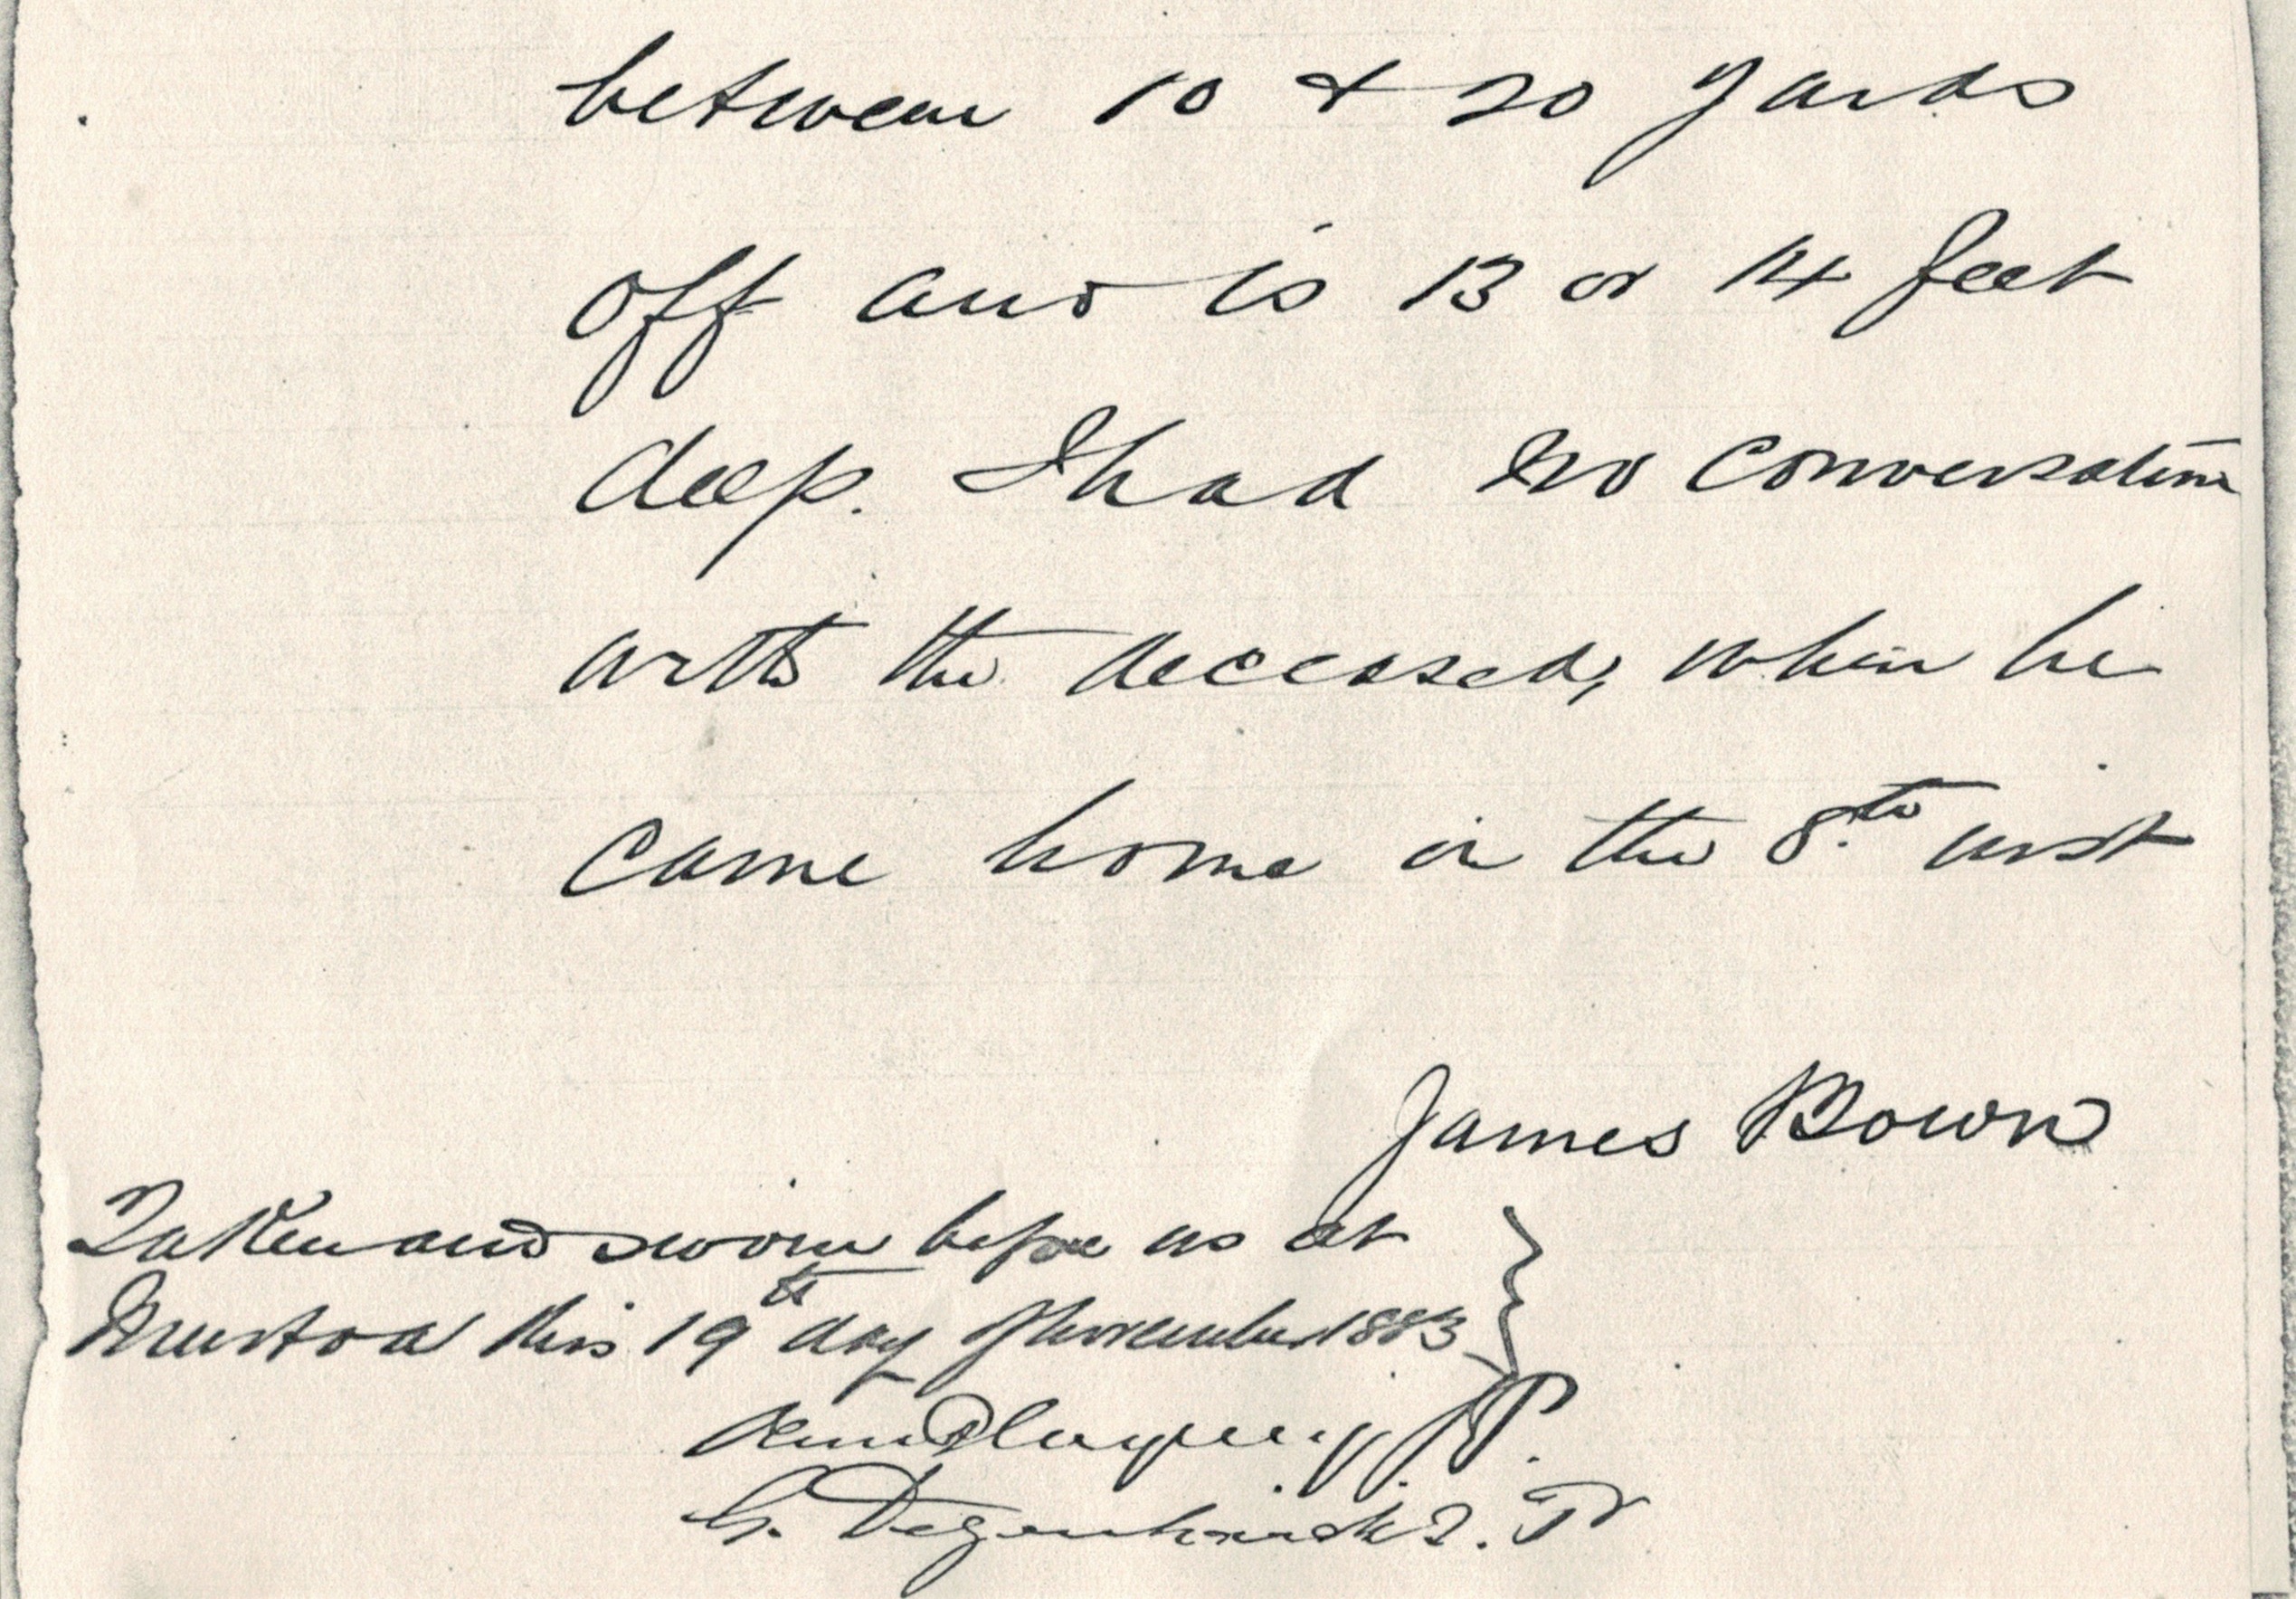 between 10 & 20 yards
off and is 13 or 14 feet
deep. I had no conversation
with the deceased, when he
came home in the 8th inst
James Bown
Taken and sworn before us at
Murtoa this 19th day of November 1883
J.P.
G. Degenhardt J.P